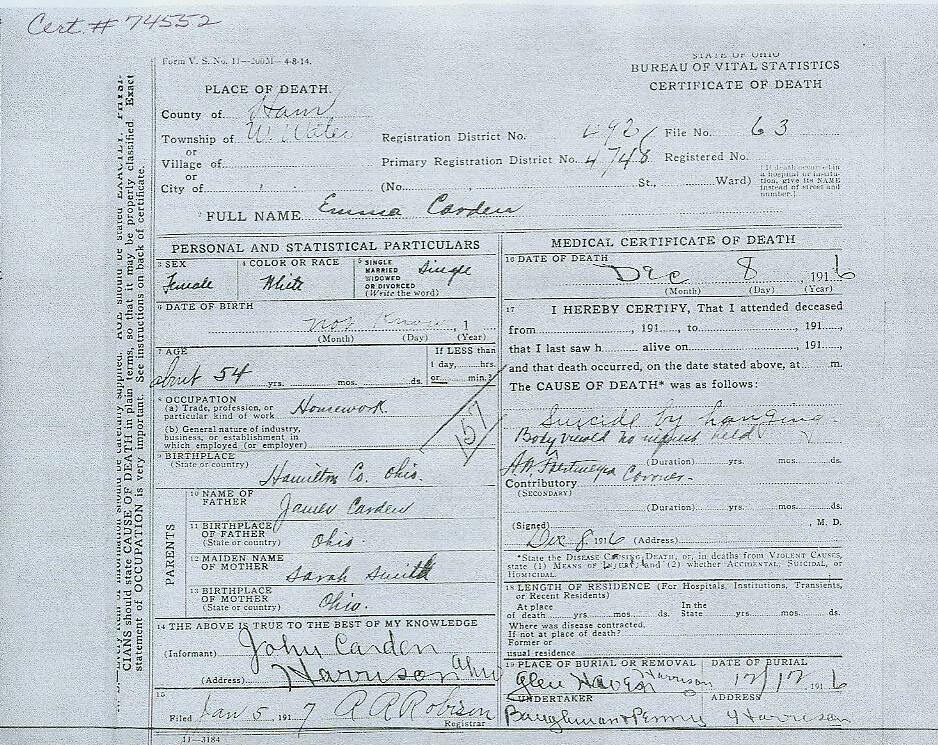 Cert. # 74552
Form V. S. No. 11—200M—4-8-14.
STATE OF OHIO
BUREAU OF VITAL STATISTICS
CERTIFICATE OF DEATH
PLACE OF DEATH.
County of Ham
Township of W. Water
or
Village of
or
City of
Registration District No. 492 File No. 63
Primary Registration District No. 4748 Registered No.
(No. , St., Ward)
[If death occurred in a hospital or institution, give its NAME instead of street and number.]
2 FULL NAME Emma Carden
PERSONAL AND STATISTICAL PARTICULARS
3 SEX Female
4 COLOR OR RACE White
5 SINGLE MARRIED WIDOWED OR DIVORCED (Write the word) Single
6 DATE OF BIRTH
not know, 1
(Month) (Day) (Year)
7 AGE
about 54 yrs. mos. ds.
If LESS than
1 day, hrs.
or min.?
8 OCCUPATION
(a) Trade, profession, or
particular kind of work Housework
(b) General nature of industry,
business, or establishment in
which employed (or employer)
157
9 BIRTHPLACE
(State or country) Hamilton Co. Ohio.
PARENTS
10 NAME OF
FATHER James Carden
11 BIRTHPLACE
OF FATHER
(State or country) Ohio.
12 MAIDEN NAME
OF MOTHER Sarah Smith
13 BIRTHPLACE
OF MOTHER
(State or country) Ohio.
14 THE ABOVE IS TRUE TO THE BEST OF MY KNOWLEDGE
(Informant) John Carden
(Address) Harrison Ohio
15
Filed Jan 5 1917 A A Robison
Registrar
11—3184
MEDICAL CERTIFICATE OF DEATH
16 DATE OF DEATH
Dec 8, 1916
(Month) (Day) (Year)
17 I HEREBY CERTIFY, That I attended deceased
from , 191 , to , 191 ,
that I last saw h alive on , 191 ,
and that death occurred, on the date stated above, at m.
The CAUSE OF DEATH* was as follows:
Suicide by hanging
Body viewed no inquest held
(Duration) yrs. mos. ds.
A. W. Coroner.
Contributory
(SECONDARY)
(Duration) yrs. mos. ds.
(Signed) , M. D.
Dec 8 1916 (Address)
*State the DISEASE CAUSING DEATH, or, in deaths from VIOLENT CAUSES,
state (1) MEANS OF INJURY; and (2) whether ACCIDENTAL, SUICIDAL, or
HOMICIDAL.
18 LENGTH OF RESIDENCE (For Hospitals, Institutions, Transients,
or Recent Residents)
At place of death yrs. mos. ds. In the State yrs. mos. ds.
Where was disease contracted,
If not at place of death?
Former or
usual residence
19 PLACE OF BURIAL OR REMOVAL
Glen Haven Harrison
DATE OF BURIAL
12/12 1916
UNDERTAKER
Baughman & Penny
ADDRESS
Harrison
CIANS should state CAUSE OF DEATH in plain terms, so that it may be properly classified. Exact
statement of OCCUPATION is very important. See instructions on back of certificate.